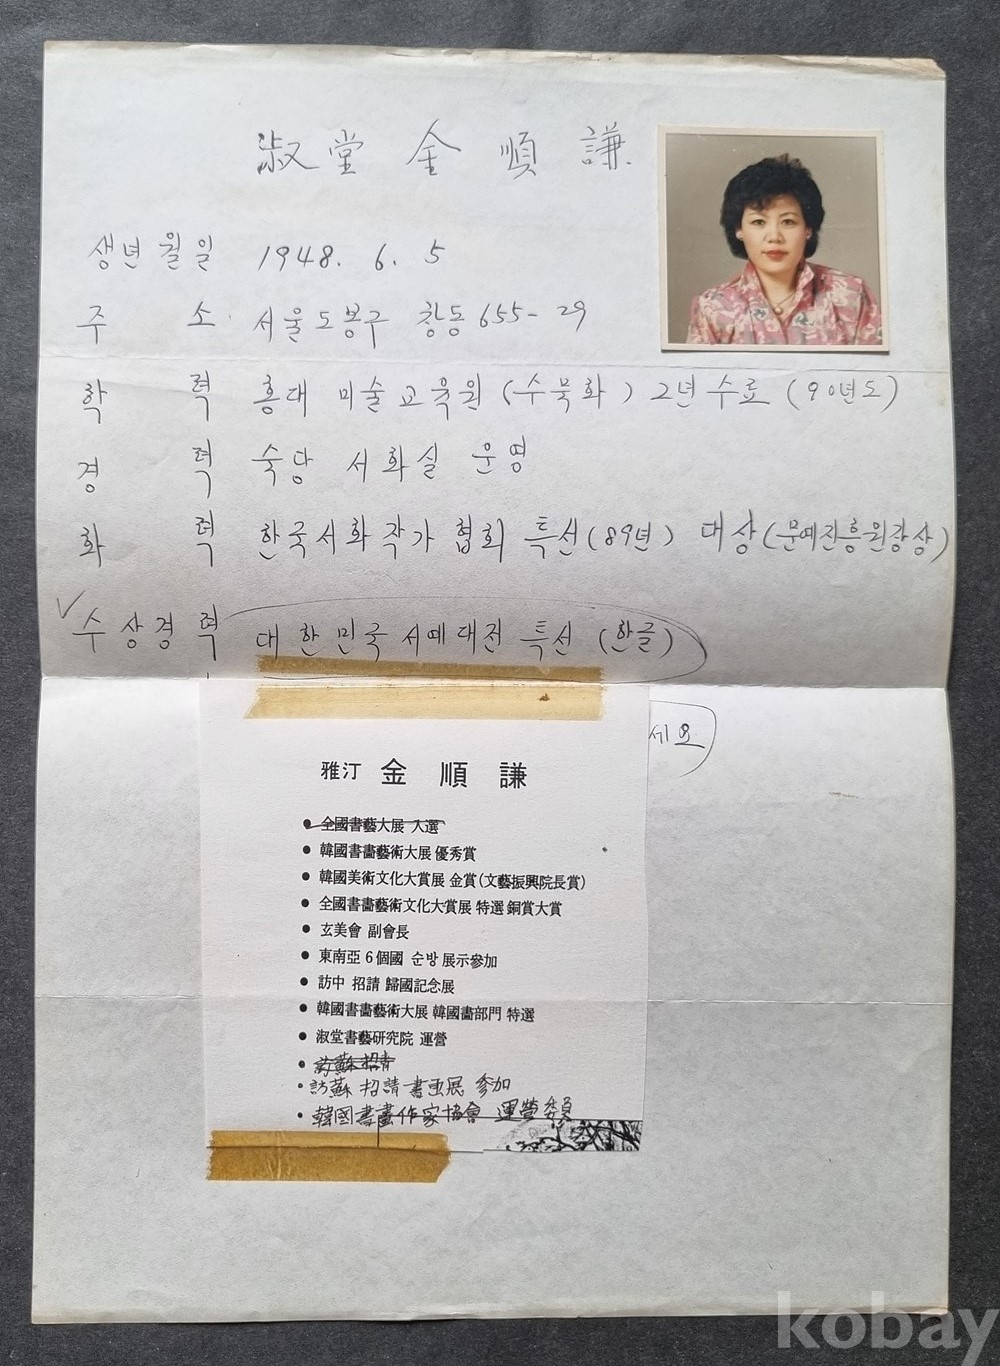 淑堂 金 順 謙
생년월일 1948. 6. 5
주 소 서울도봉구 창동 655-29
학 력 홍대 미술교육원 (수묵화) 2년 수료 (90년도)
경 력 숙당 서화실 운영
화 력 한국서화작가협회 특선(89년) 대상(문예진흥원장상)
✓ 수상경력 대한민국 서예대전 특선 (한글)
세요
雅汀 金 順 謙
● 全國書藝大展 入選
● 韓國書畵藝術大展 優秀賞
● 韓國美術文化大賞展 金賞(文藝振興院長賞)
● 全國書畵藝術文化大賞展 特選 銅賞大賞
● 玄美會 副會長
● 東南亞 6個國 순방 展示參加
● 訪中 招請 歸國記念展
● 韓國書畵藝術大展 韓國畵部門 特選
● 淑堂書藝硏究院 運營
● 訪蘇 招請
• 訪蘇 招請 書画展 參加
• 韓國書畫作家協會 運營委員
kobay